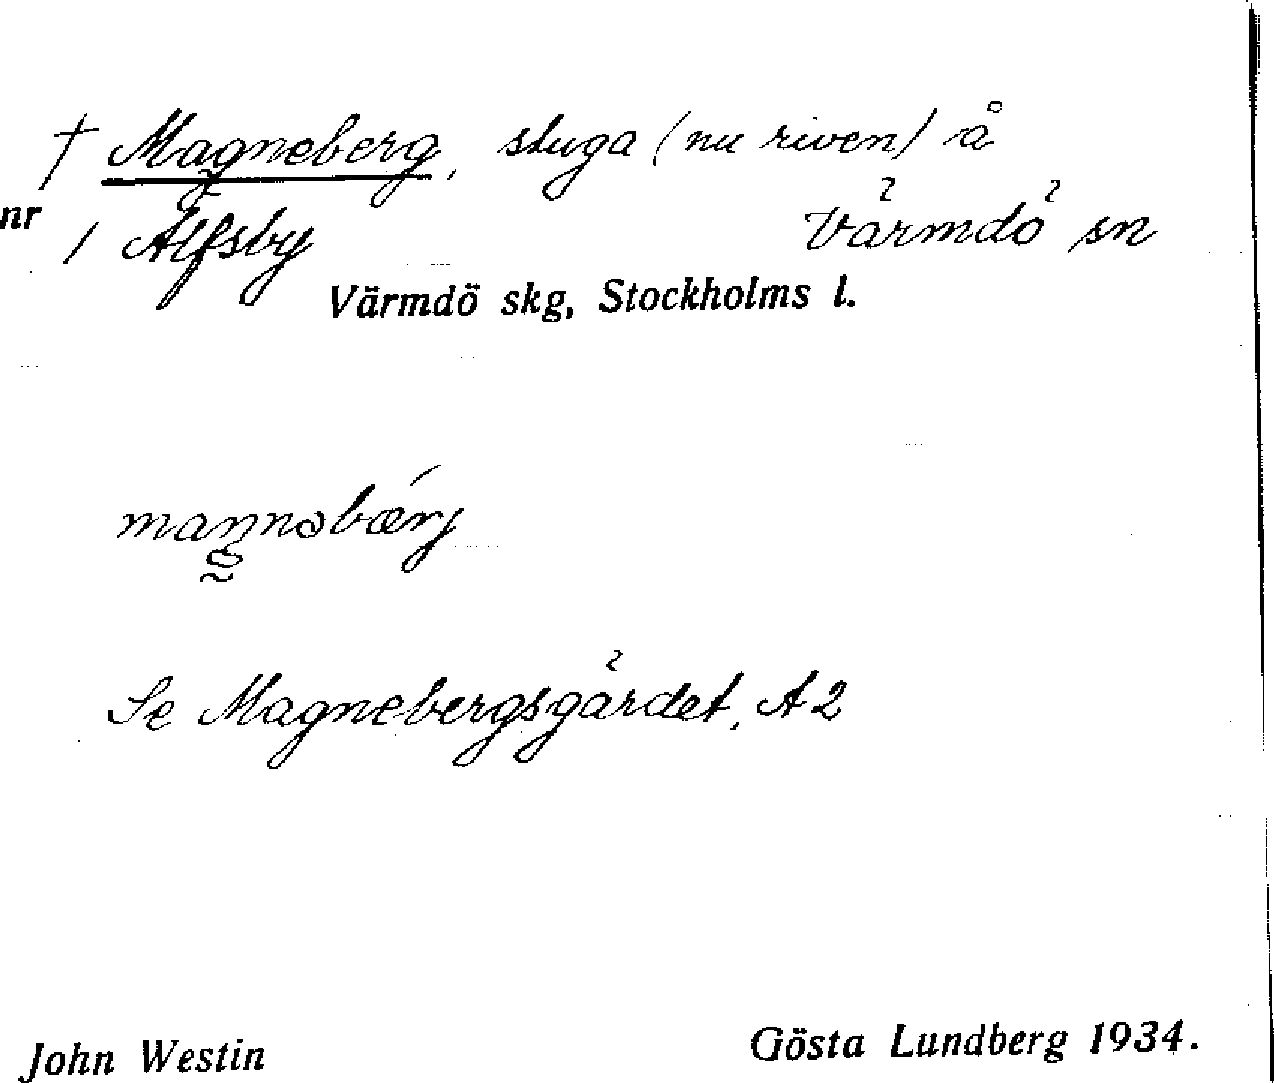 † Magneberg, stuga (nu riven) å
nr 1 Alfsby Värmdö sn
Värmdö skg, Stockholms l.
Se Magnebergsgärdet, A2
John Westin Gösta Lundberg 1934.